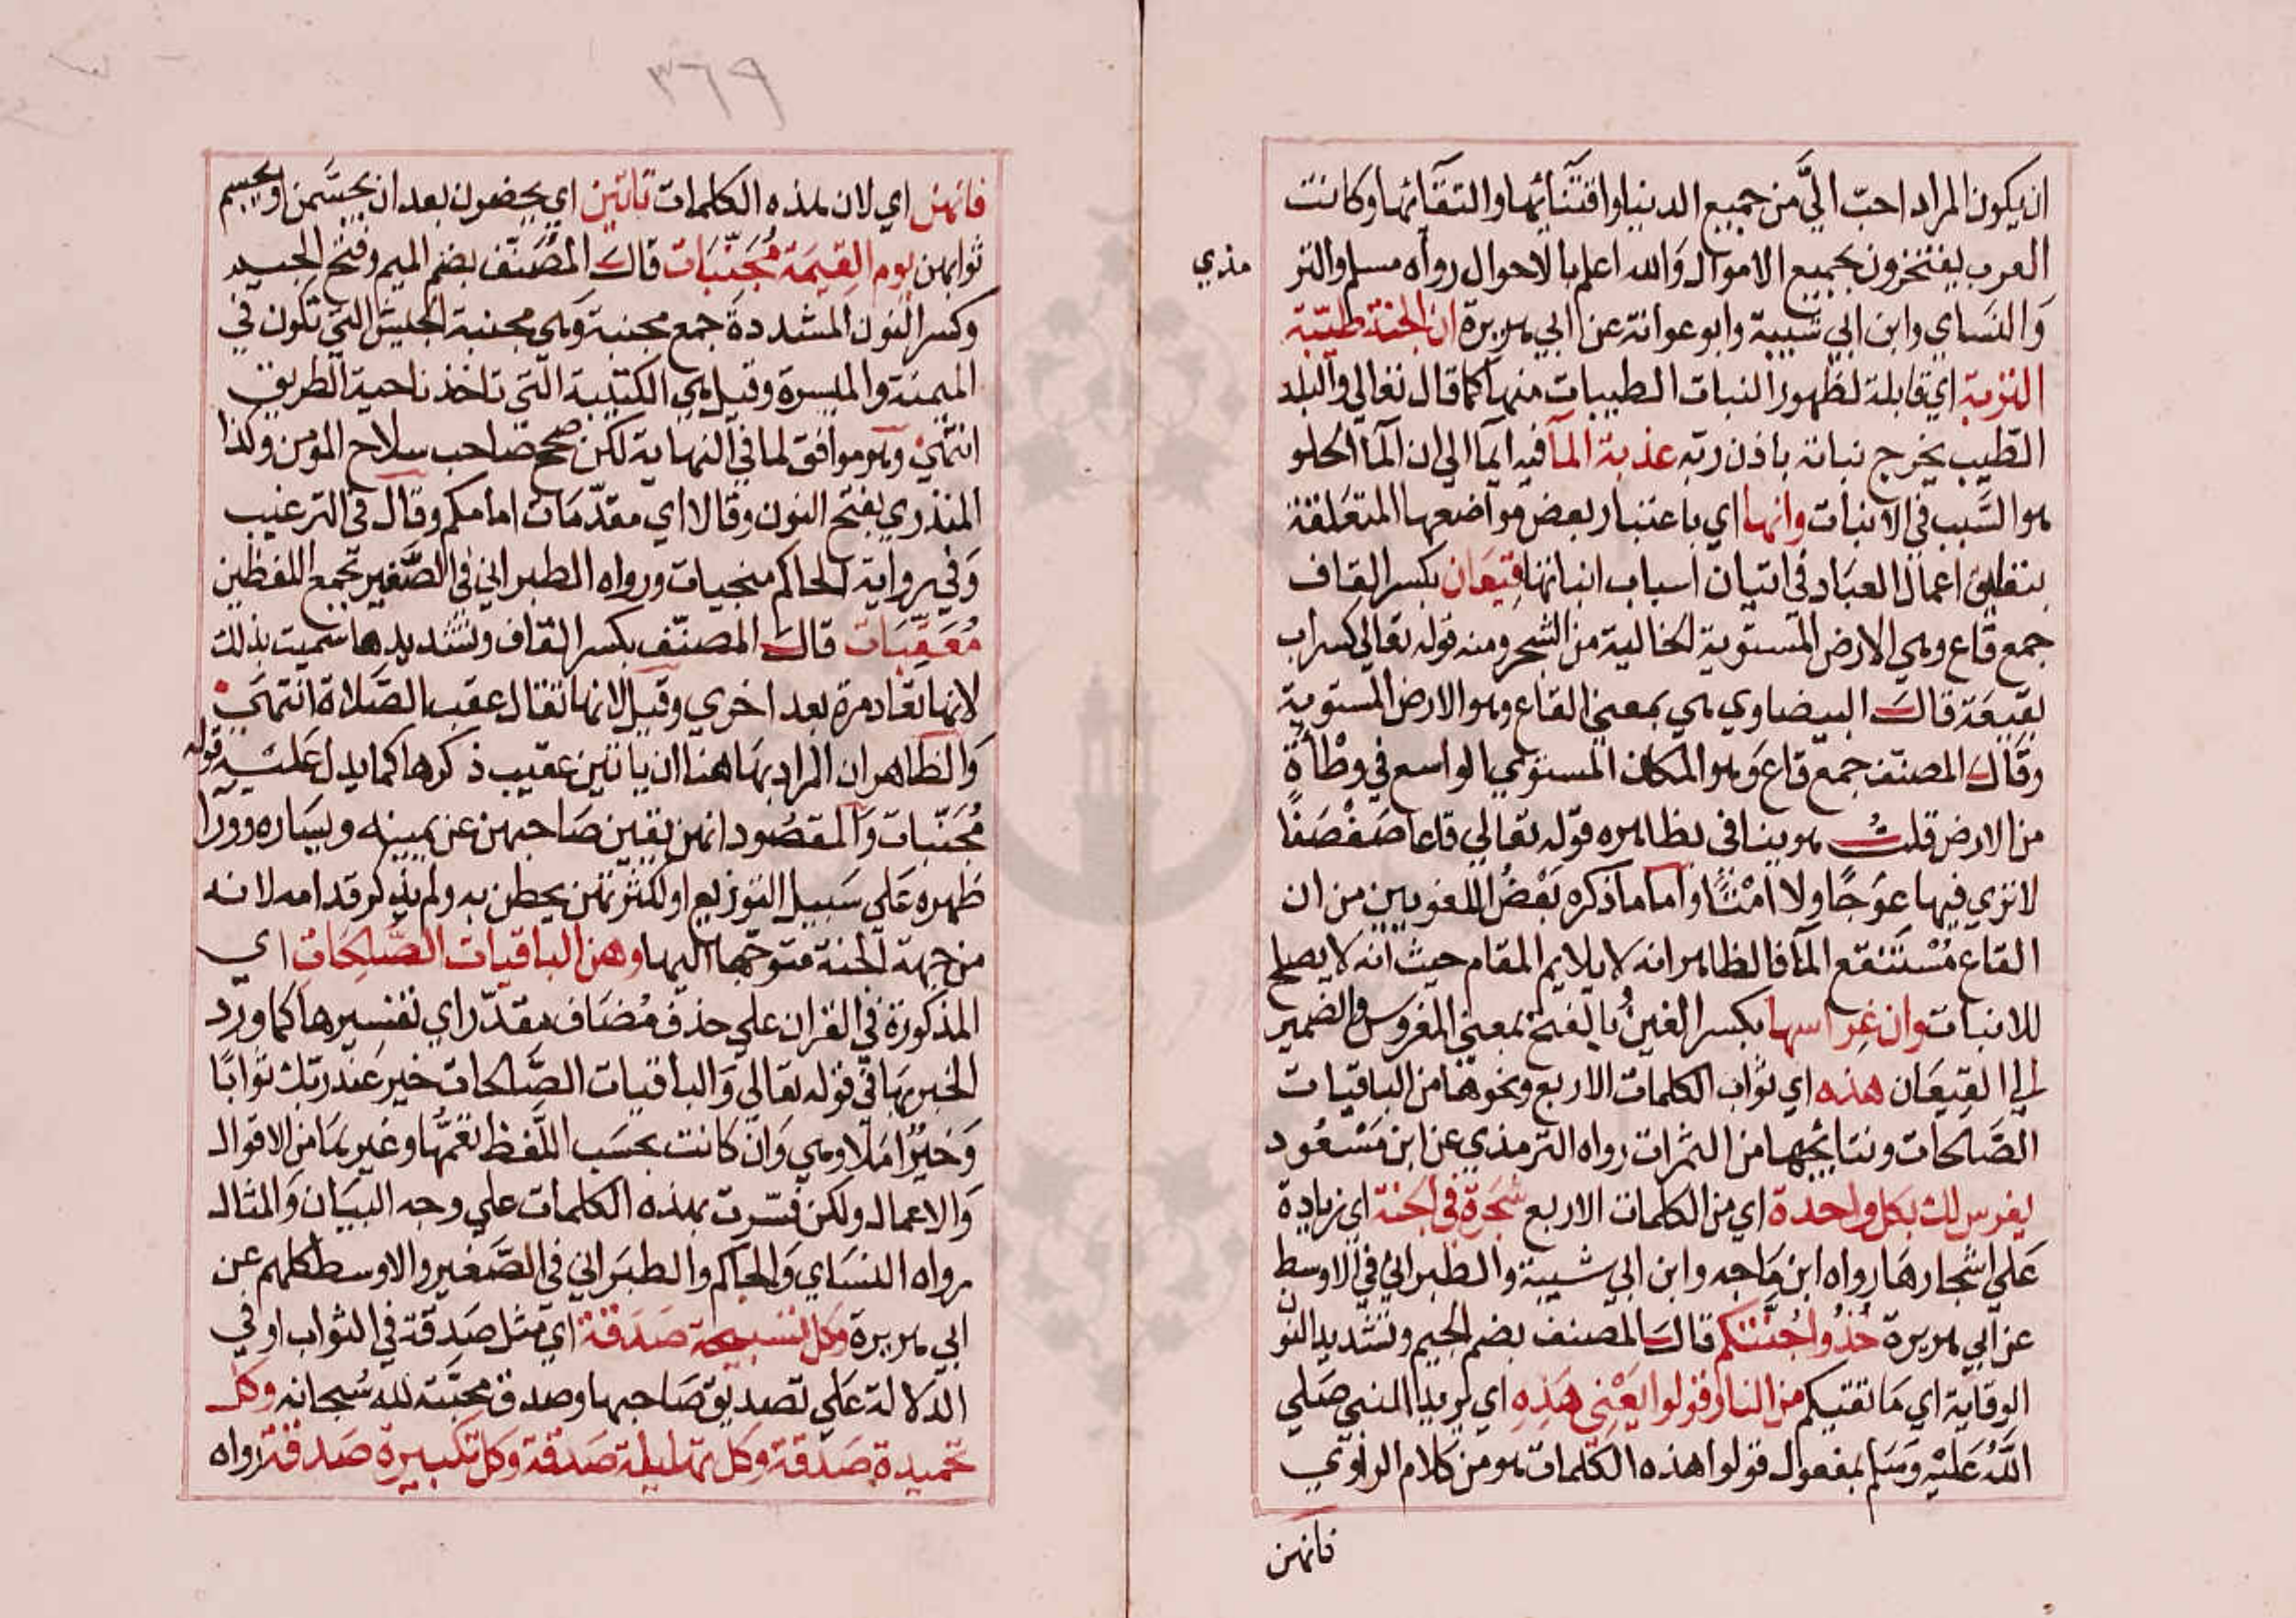 ان يكون المراد احبّ اليَّ من جميع الدنيا واقتنَائها والتقَائها وكانت
العرب يفتخرون بجميع الاموال وَالله اعلم بالاحوال رواه مسلم والتر
مذي
وَالنسَاي وابن ابي شيبة وابو عوانة عن ابي هريرة ان الجنة طيّبة
التربة اي قابلة لظهور النبات الطيبات منها كما قال تعالي والبلد
الطّيب يخرج نباته باذن ربه عذبة المآ فيه ايما الي ان المآ الحلو
هو السَّبب في الانبات وانها اي باعتبار بعض مواضعها المتعَلقة
بتعليق اعمال العبَاد في اتيان اسباب انباتها قِيعَان بكسر القاف
جمع قاع وهي الارض المستوية الخالية من الشجر ومنه قوله تعالي كسراب
بقيعَة قالَ البيضاوي هي بمعني القاع وهو الارض المستوية
وقَال المصنف جمع قاع وَهو المكان المستوي الواسع في وطْأةٍ
من الارض قلتُ هو ينافي بظاهره قوله تعالي قاعا صَفْصَفًا
لا تري فيها عوَجًا ولا امْتًا واما ما ذكره بَعْضُ اللغويين من ان
القاع مُسْتَنقع المآ فالظاهر انه لا يلايم المقام حيث انه لا يصلح
للانبات وان غِراسها بكسر الغين بالفتح بمعني المغروس والضمير
الي القِيعَان هذه اي ثواب الكلمات الاربع ونحوها من الباقيات
الصَّالحات ونتايجها من الثمرات رواه الترمذي عن ابن مَسْعُود
يغرس لك بكل واحدة اي من الكلمات الاربع شجَرة في الجنة اي زيادة
عَلي اشجارهَا رواه ابن مَاجه وابن ابي شيبة والطبراني في الاوسط
عن ابي هريرة خُذُوا جُنَّتكم قالَ المصنف بضم الجيم وتشديد النون
الوقاية اي مَا تقيكم من النار قولوا يَعْنِي هَذِهِ اي يريد النبي صَلي
اللهُ عَليْه وَسَلم بمفعول قولوا هذه الكلمات هو من كلام الراوي
فانهن
٣٦٩
فانهن اي لان هذه الكلمات تاتين اي يحضرون بعد ان يجسَّمن او يجسم
ثوابهن يوم القِيمَة مُجَنِّبَات قالَ المُصَنّف بضم الميم وفتح الجيم
وكسر النون المشددة جمع مجنبة وَهي مجنبة الجيش التي تكون في
الميمنة والميسرة وقيل هي الكتيبة التي تاخذ ناحية الطريق
انتهيْ وهو موافق لما في النهاية لكن صحح صاحب سلاح المومن وكذا
المنذري بفتح النون وقالا اي مقدّمَات امامكم وقال في الترغيب
وَفي رواية الحاكم منجيات ورواه الطبراني في الصَّغير تجمع اللفظين
مُعَقِّبَات قالَ المصنّف بكسر القاف وتشديدها سميت بذلك
لانها تعاد مرة بعد اخري وقيل لانها تقال عقب الصَّلاة انتهَي
وَالظاهر ان المراد بهَا هنا ان ياتين عقيب ذكرها كما يدل عَليه قوله
مُجَنّبات وَالمقصُود انهن يقين صَاحبهن عن يمينه ويسَاره وورا
ظهره عَلي سَبيل التوزيع او لكثرتهن يحطن به ولم يذكر قدامه لانه
من جهة الجنة متوجها اليها وهن الباقيات الصَّلِحَاتُ اي
المذكورة في القران علي حذف مُضَاف مقدّر اي تفسيرها كما ورد
الخبر بهَا في قوله تعالي وَالباقيات الصَّالحات خير عند ربّك ثوابًا
وَخيْرٌ امَلا وهي وَان كانت بحسَب اللَّفظ تعُمّها وغيرهَا من الاقوال
وَالاعمال ولكن فسّرت بهذه الكلمات علي وجه البيَان وَالمثال
رواه النسَاي وَالحاكم والطبَراني في الصَّغير والاوسط كلهم عن
ابي هريرة وكل تسبيحة صَدَقة اي مثل صَدقة في الثواب او في
الدلالة عَلي تصديق صَاحبها وصدق محبَّته لله سُبحانه وكل
تحميدة صَدَقة وَكل تهليلة صَدقة وَكل تكبيرة صَدقة رواه